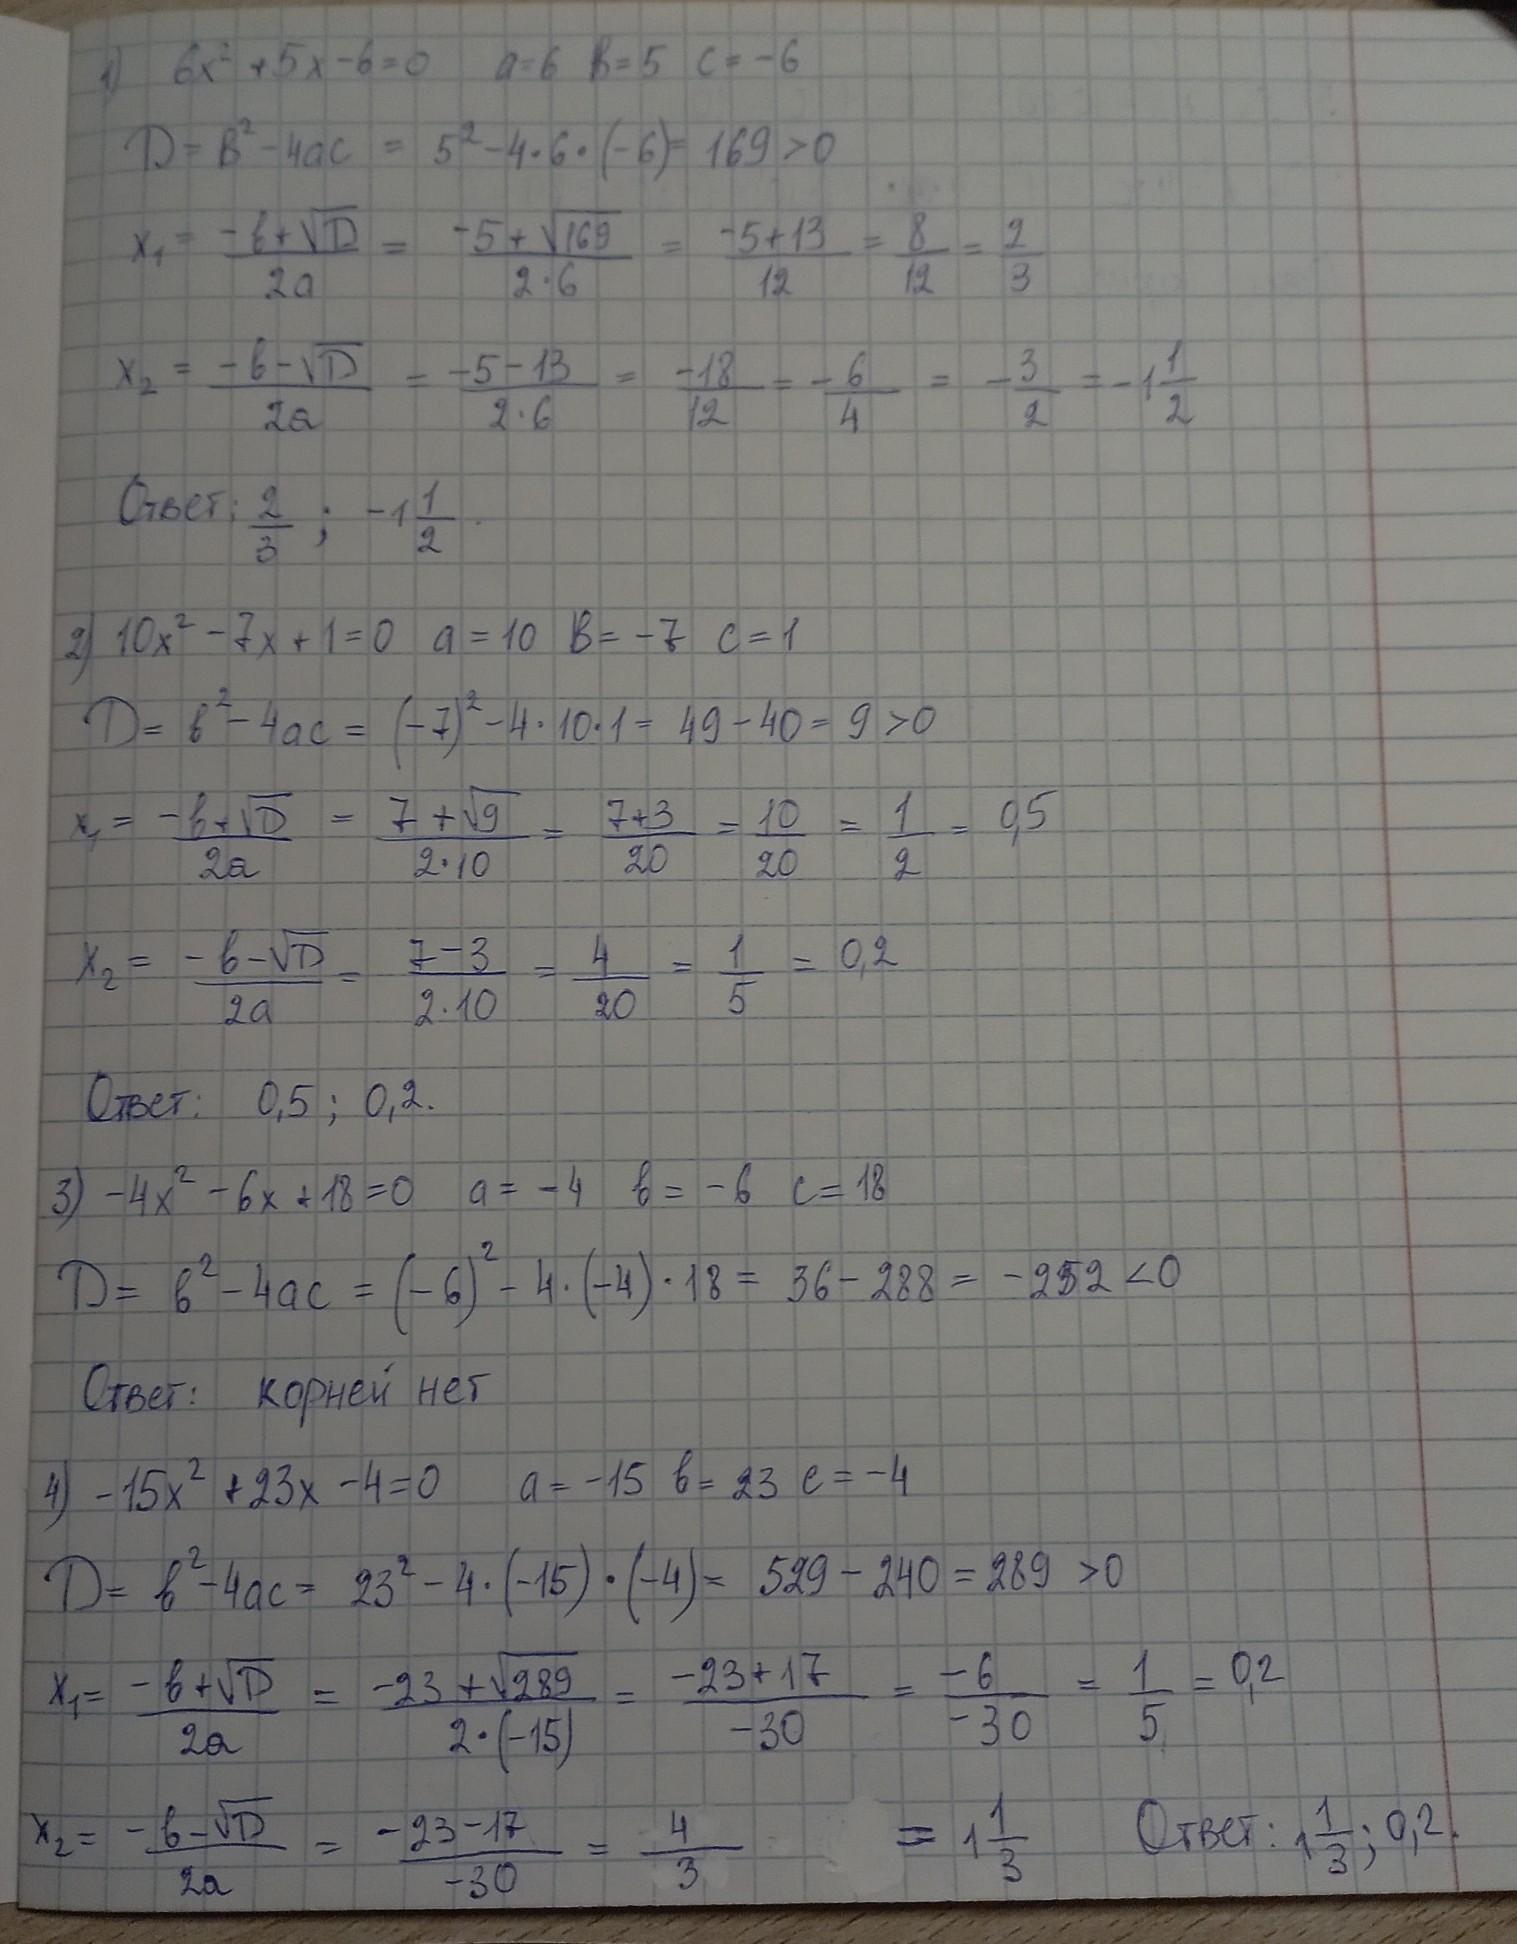 1) 6x² + 5x - 6 = 0 a = 6 B = 5 c = -6
D = B² - 4ac = 5² - 4·6·(-6) = 169 > 0
x₁ = (-b + √D)/(2a) = (-5 + √169)/(2·6) = (-5 + 13)/12 = 8/12 = 2/3
x₂ = (-b - √D)/(2a) = (-5 - 13)/(2·6) = -18/12 = -6/4 = -3/2 = -1 1/2
Ответ: 2/3 ; -1 1/2.
2) 10x² - 7x + 1 = 0 a = 10 B = -7 c = 1
D = b² - 4ac = (-7)² - 4·10·1 = 49 - 40 = 9 > 0
x₁ = (-b + √D)/(2a) = (7 + √9)/(2·10) = (7 + 3)/20 = 10/20 = 1/2 = 0,5
x₂ = (-b - √D)/(2a) = (7 - 3)/(2·10) = 4/20 = 1/5 = 0,2
Ответ: 0,5 ; 0,2.
3) -4x² - 6x + 18 = 0 a = -4 b = -6 c = 18
D = b² - 4ac = (-6)² - 4·(-4)·18 = 36 - 288 = -252 < 0
Ответ: корней нет
4) -15x² + 23x - 4 = 0 a = -15 b = 23 c = -4
D = b² - 4ac = 23² - 4·(-15)·(-4) = 529 - 240 = 289 > 0
x₁ = (-b + √D)/(2a) = (-23 + √289)/(2·(-15)) = (-23 + 17)/(-30) = (-6)/(-30) = 1/5 = 0,2
x₂ = (-b - √D)/(2a) = (-23 - 17)/(-30) = 4/3 = 1 1/3 Ответ: 1 1/3 ; 0,2.